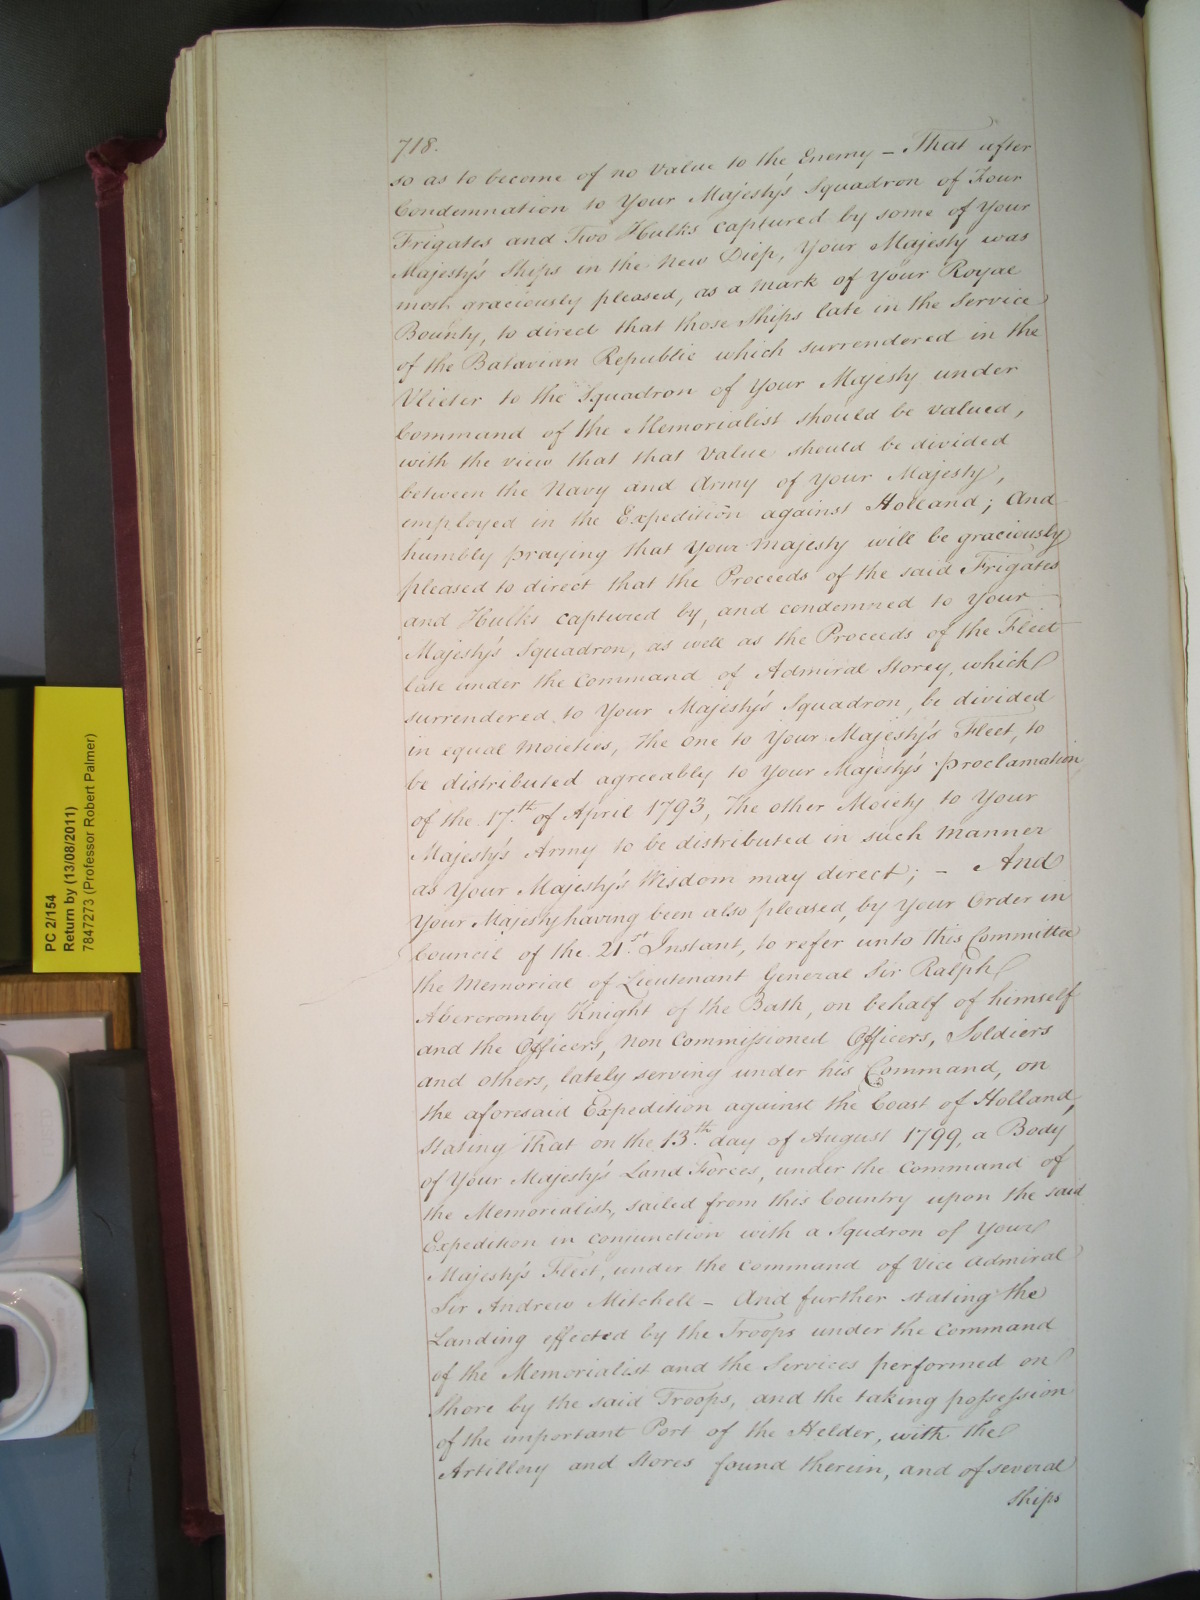 718.
so as to become of no Value to the Enemy – That after
Condemnation to Your Majesty's Squadron of Four
Frigates and Two Hulks captured by some of Your
Majesty's Ships in the New Diep, Your Majesty was
most graciously pleased, as a Mark of Your Royal
Bounty, to direct that those Ships late in the Service
of the Batavian Republic which surrendered in the
Vlieter to the Squadron of Your Majesty under
Command of the Memorialist should be valued,
with the view that that Value should be divided
between the Navy and Army of Your Majesty,
employed in the Expedition against Holland; And
humbly praying that Your Majesty will be graciously
pleased to direct that the Proceeds of the said Frigates
and Hulks captured by, and condemned to Your
Majesty's Squadron, as well as the Proceeds of the Fleet
late under the Command of Admiral Storey, which
surrendered to Your Majesty's Squadron, be divided
in equal Moieties, the one to Your Majesty's Fleet, to
be distributed agreeably to Your Majesty's Proclamation
of the 17.th of April 1793, the other Moiety to Your
Majesty's Army to be distributed in such Manner
as Your Majesty's Wisdom may direct; – And
Your Majesty having been also pleased, by Your Order in
Council of the 21.st Instant, to refer unto this Committee
the Memorial of Lieutenant General Sir Ralph
Abercromby Knight of the Bath, on behalf of himself
and the Officers, Non Commissioned Officers, Soldiers
and others, lately serving under his Command, on
the aforesaid Expedition against the Coast of Holland,
stating that on the 13.th day of August 1799, a Body
of Your Majesty's Land Forces, under the Command of
the Memorialist, sailed from this Country upon the said
Expedition in conjunction with a Squdron of Your
Majesty's Fleet, under the Command of Vice Admiral
Sir Andrew Mitchell – And further stating the
Landing effected by the Troops under the Command
of the Memorialist and the Services performed on
Shore by the said Troops, and the taking possession
of the important Port of the Helder, with the
Artillery and Stores found therein, and of several
Ships
PC 2/154
Return by (13/08/2011)
7847273 (Professor Robert Palmer)